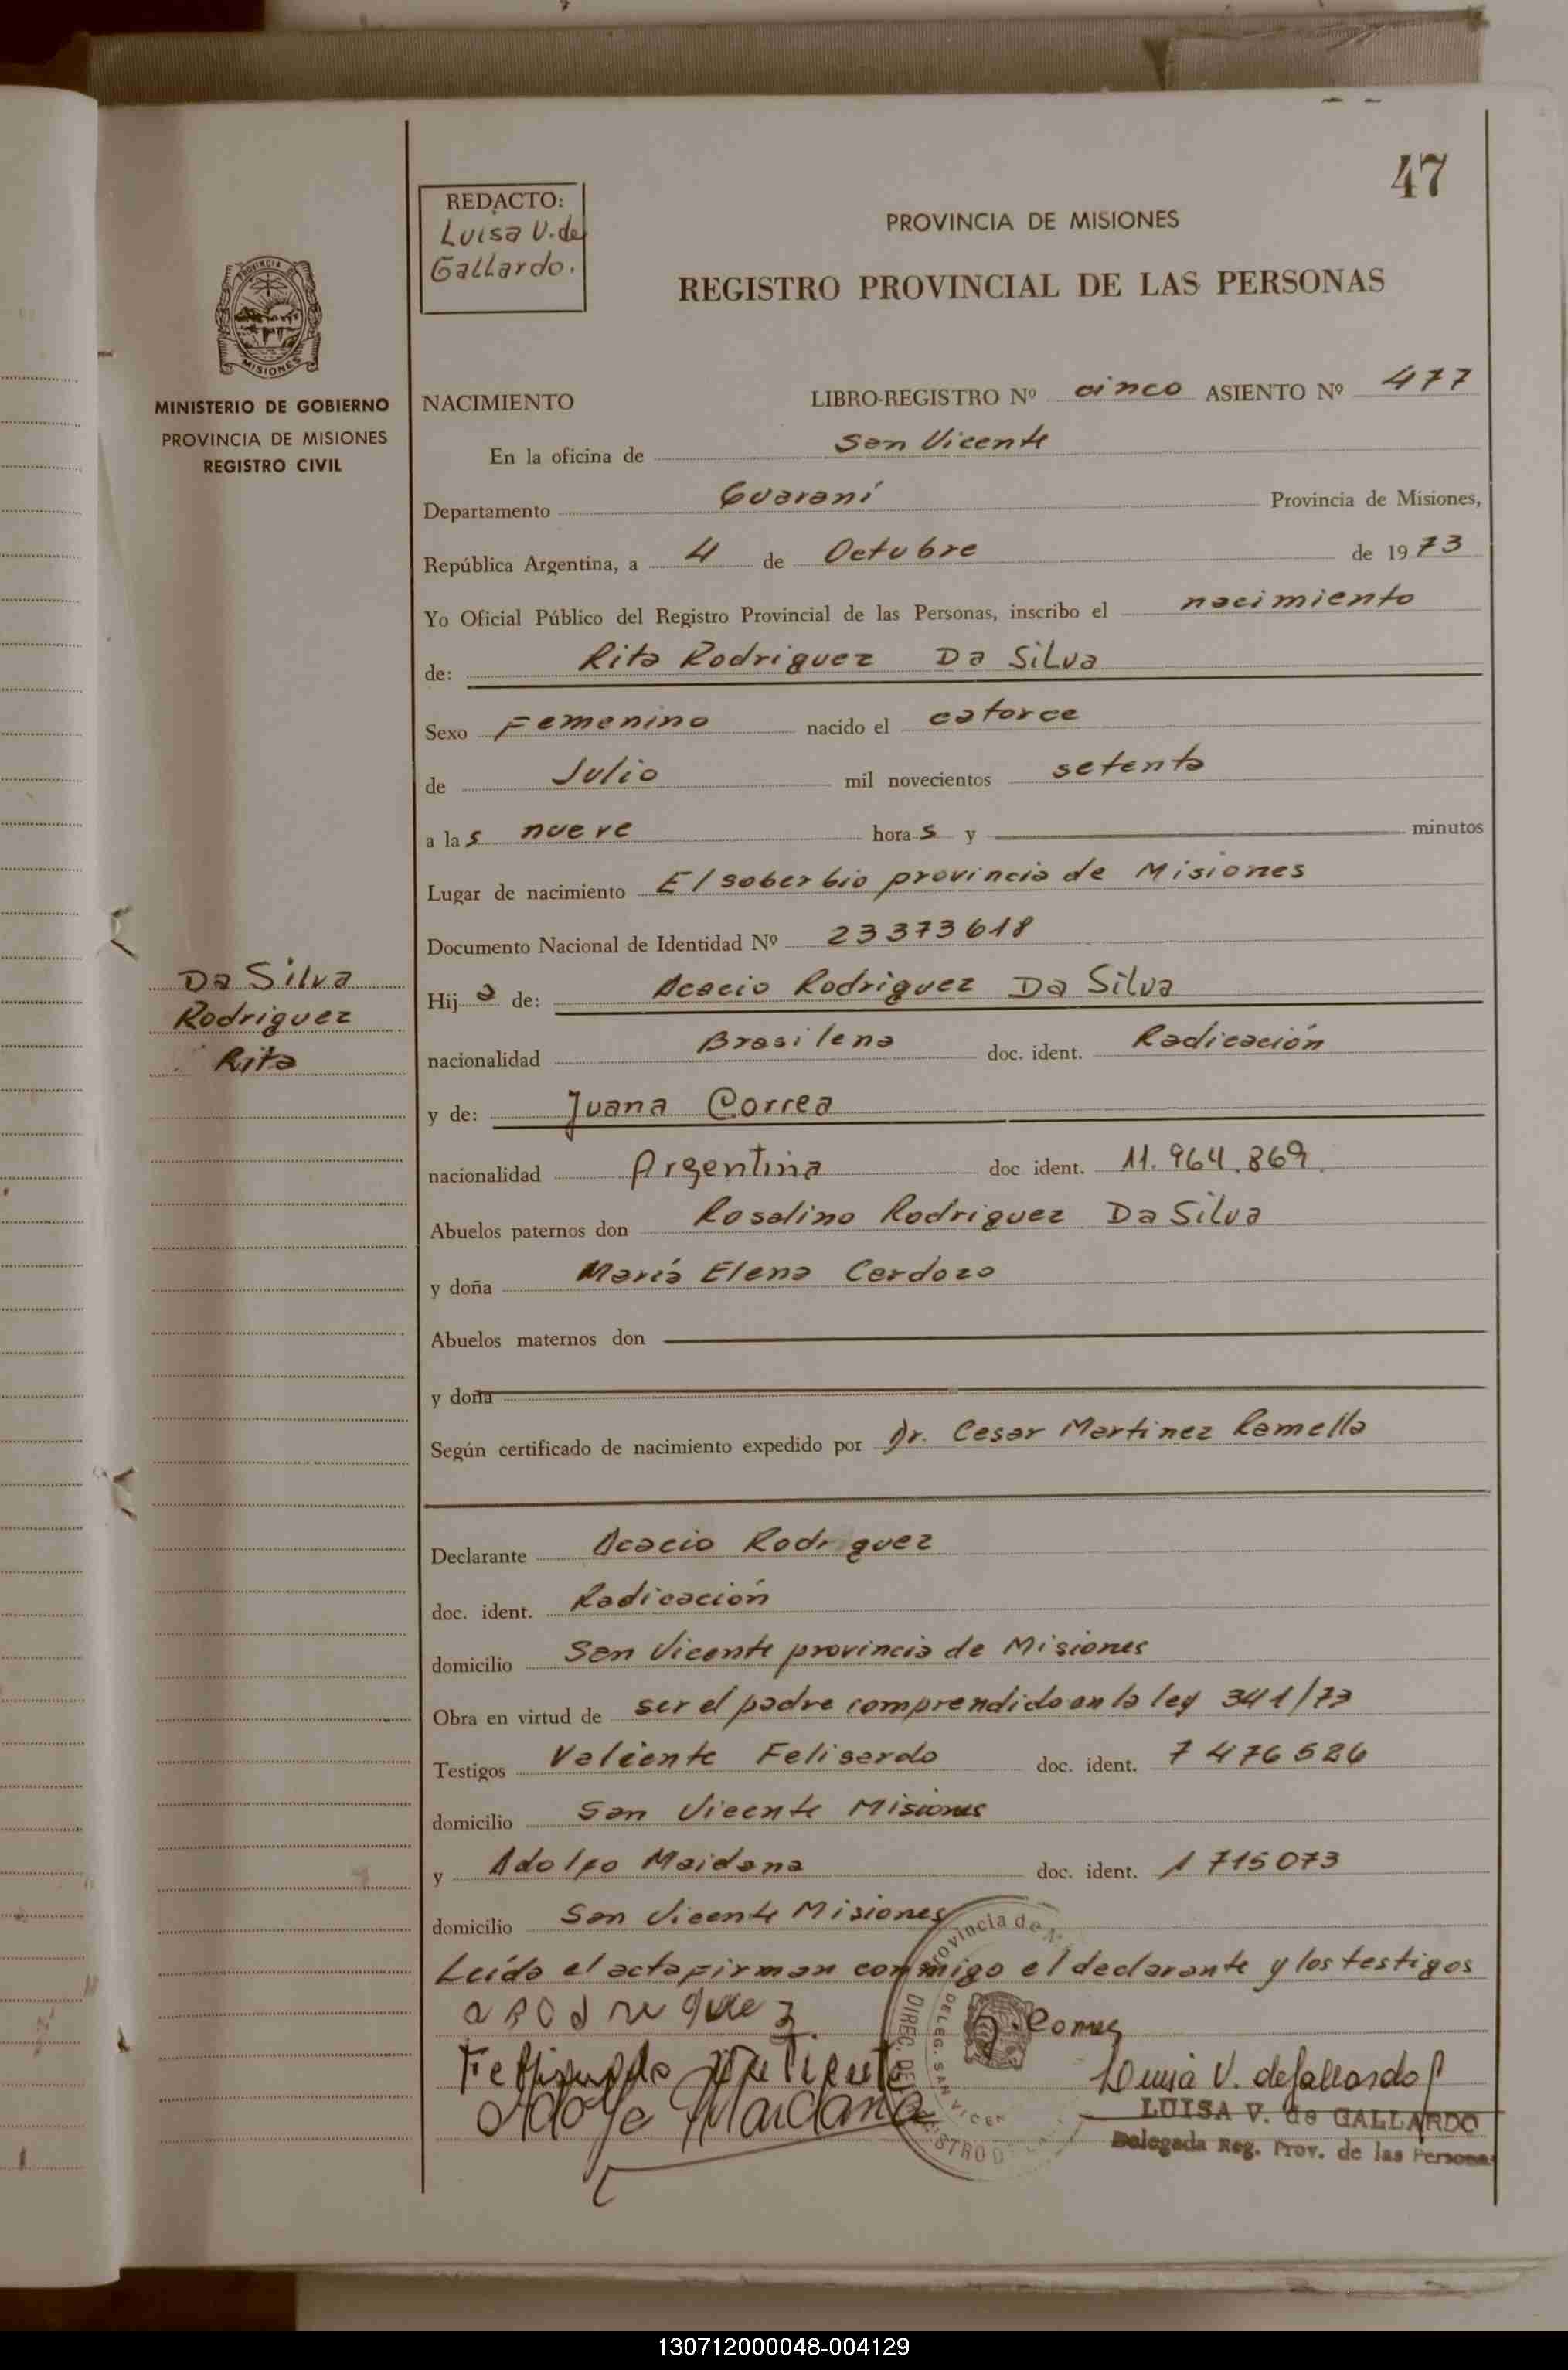 47
REDACTO:
Luisa V. de
Gallardo.
PROVINCIA DE MISIONES
REGISTRO PROVINCIAL DE LAS PERSONAS
PROVINCIA DE
MISIONES
MINISTERIO DE GOBIERNO
PROVINCIA DE MISIONES
REGISTRO CIVIL
NACIMIENTO LIBRO-REGISTRO Nº cinco ASIENTO Nº 477
En la oficina de San Vicente
Departamento Guaraní Provincia de Misiones,
República Argentina, a 4 de Octubre de 1973
Yo Oficial Público del Registro Provincial de las Personas, inscribo el nacimiento
de: Rita Rodriguez Da Silva
Sexo Femenino nacido el catorce
de Julio mil novecientos setenta
a las nueve horas y minutos
Lugar de nacimiento El soberbio provincia de Misiones
Documento Nacional de Identidad Nº 23373618
Da Silva
Rodriguez
Rita
Hija de: Acacio Rodriguez Da Silva
nacionalidad Brasilena doc. ident. Radicación
y de: Juana Correa
nacionalidad Argentina doc ident. 11.964.869.
Abuelos paternos don Rosalino Rodriguez Da Silva
y doña María Elena Cardozo
Abuelos maternos don
y doña
Según certificado de nacimiento expedido por Dr. Cesar Martinez Ramella
Declarante Acacio Rodriguez
doc. ident. Radicación
domicilio San Vicente provincia de Misiones
Obra en virtud de ser el padre comprendido en la ley 341/73
Testigos Valiente Felisardo doc. ident. 7476526
domicilio San Vicente Misiones
y Adolfo Maidana doc. ident. 1715073
domicilio San Vicente Misiones
Leída el acta firman conmigo el declarante y los testigos
Provincia de
DIREC. DEL
DELEG. SAN VICEN
a Rodriguez
Adolfo Maidana
Luisa V. de Gallardo
LUISA V. de GALLARDO
Delegada Reg. Prov. de las Personas
130712000048-004129